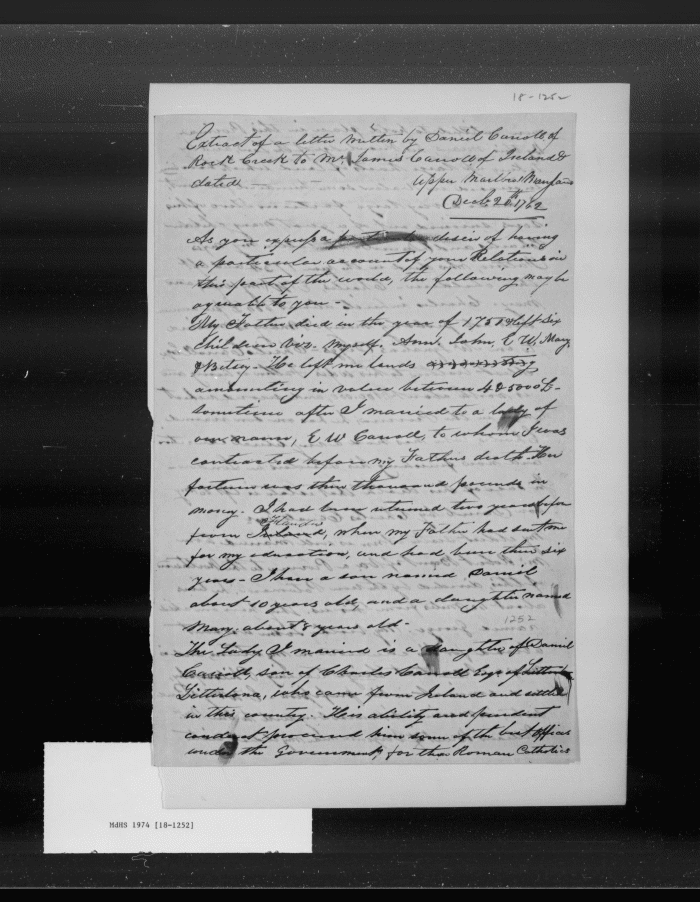 18-1252
Extract of a letter written by Daniel Carroll of
Rock Creek to Mr James Carroll of Ireland
dated — Upper Marlbro' Maryland
Decbr 20th 1762
As you express a desire of having
a particular account of your Relations in
this part of the world, the following may be
agreeable to you -
My Father died in the year of 1751 & left six
children viz. myself, Ann. John, E W, Mary
& Betsy. He left me lands
amounting in value between 4 & 5000 £-
sometime after I married to a lady of
our name, E W Carroll, to whom I was
contracted before my Fathers death. Her
fortune was three thousand pounds in
money. I had been returned two years before
Flanders
from Ireland, where my Father had sent me
for my education, and had been there six
years - I have a son named Daniel
about 10 years old, and a daughter named
Mary about 8 years old -
1252
The Lady I married is a daughter of Daniel
Carroll, son of Charles Carroll Esqr of
Litterlona, who came from Ireland and settled
in this country. His ability and prudent
conduct procured him some of the best offices
under the Government, for the Roman Catholics
MdHS 1974 [18-1252]